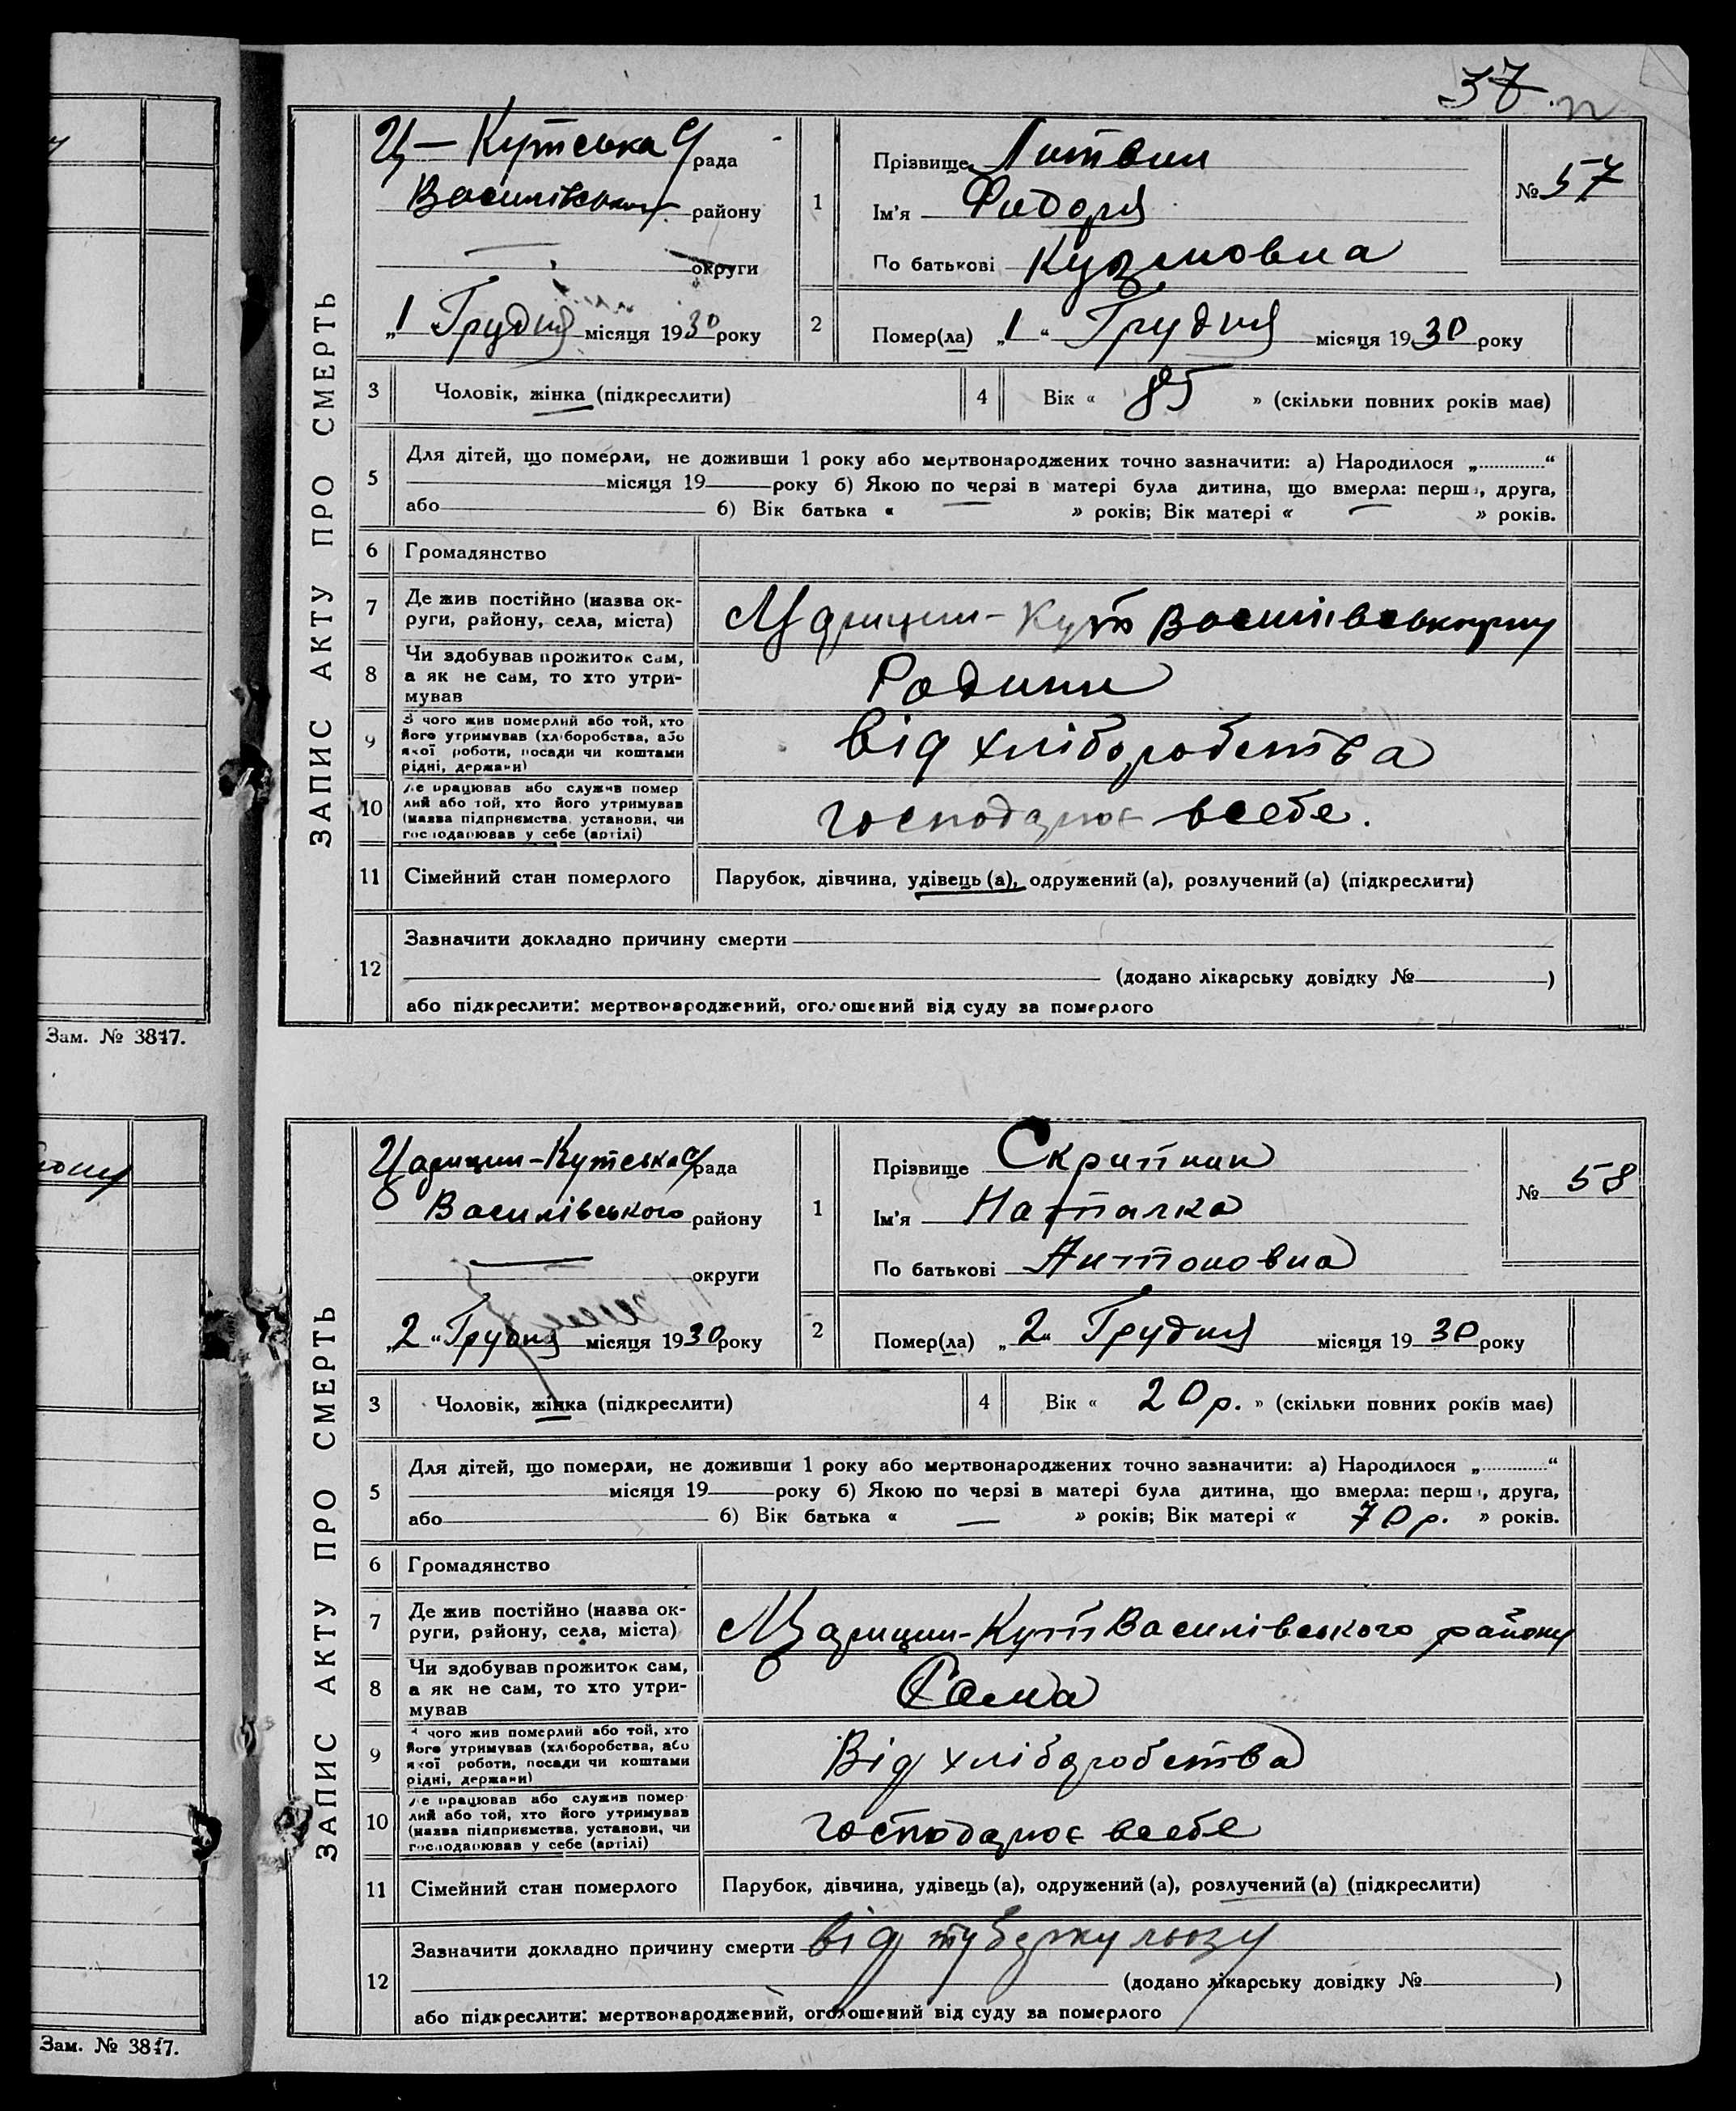 37
ЗАПИС АКТУ ПРО СМЕРТЬ
Ц–Кутська рада
Василівського району
округи
„1 Грудня місяця 1930 року
1
Прізвище Литвин
Ім'я Федоря
По батькові Кузмовна
№ 57
2
Помер(ла) „1“ Грудня місяця 1930 року
3
Чоловік, жінка (підкреслити)
4
Вік « 85 » (скільки повних років має)
5
Для дітей, що померли, не доживши 1 року або мертвонароджених точно зазначити: а) Народилося „ “
місяця 19 року б) Якою по черзі в матері була дитина, що вмерла: перш , друга,
або б) Вік батька « — » років; Вік матері « — » років.
6
Громадянство
7
Де жив постійно (назва ок-
руги, району, села, міста)
Царицин-Кут Василівського
8
Чи здобував прожиток сам,
а як не сам, то хто утри-
мував
Родини
9
З чого жив померлий або той, хто
його утримував (хліборобства, або
якої роботи, посади чи коштами
рідні, держави)
від хліборобства
10
Де працював або служив помер
лий або той, хто його утримував
(назва підприємства, установи, чи
господарював у себе (артілі)
господарює всебе.
11
Сімейний стан померлого
Парубок, дівчина, удівець (а), одружений (а), розлучений (а) (підкреслити)
12
Зазначити докладно причину смерти
(додано лікарську довідку № )
або підкреслити: мертвонароджений, оголошений від суду за померлого
Зам. № 3817.
ЗАПИС АКТУ ПРО СМЕРТЬ
Царицин-Кутська рада
Василівського району
округи
„2“ Грудня місяця 1930 року
1
Прізвище Скрипник
Ім'я Наталка
По батькові Антоновна
№ 58
2
Помер(ла) „2“ Грудня місяця 1930 року
3
Чоловік, жінка (підкреслити)
4
Вік « 20 р. » (скільки повних років має)
5
Для дітей, що померли, не доживши 1 року або мертвонароджених точно зазначити: а) Народилося „ “
місяця 19 року б) Якою по черзі в матері була дитина, що вмерла: перш , друга,
або б) Вік батька « — » років; Вік матері « 70 р. » років.
6
Громадянство
7
Де жив постійно (назва ок-
руги, району, села, міста)
Царицин-Кут Василівського району
8
Чи здобував прожиток сам,
а як не сам, то хто утри-
мував
Сама
9
З чого жив померлий або той, хто
його утримував (хліборобства, або
якої роботи, посади чи коштами
рідні, держави)
Від хліборобства
10
Де працював або служив помер
лий або той, хто його утримував
(назва підприємства, установи, чи
господарював у себе (артілі)
господарює всебе
11
Сімейний стан померлого
Парубок, дівчина, удівець (а), одружений (а), розлучений (а) (підкреслити)
12
Зазначити докладно причину смерти від туберкульозу
(додано лікарську довідку № )
або підкреслити: мертвонароджений, оголошений від суду за померлого
Зам. № 3817.